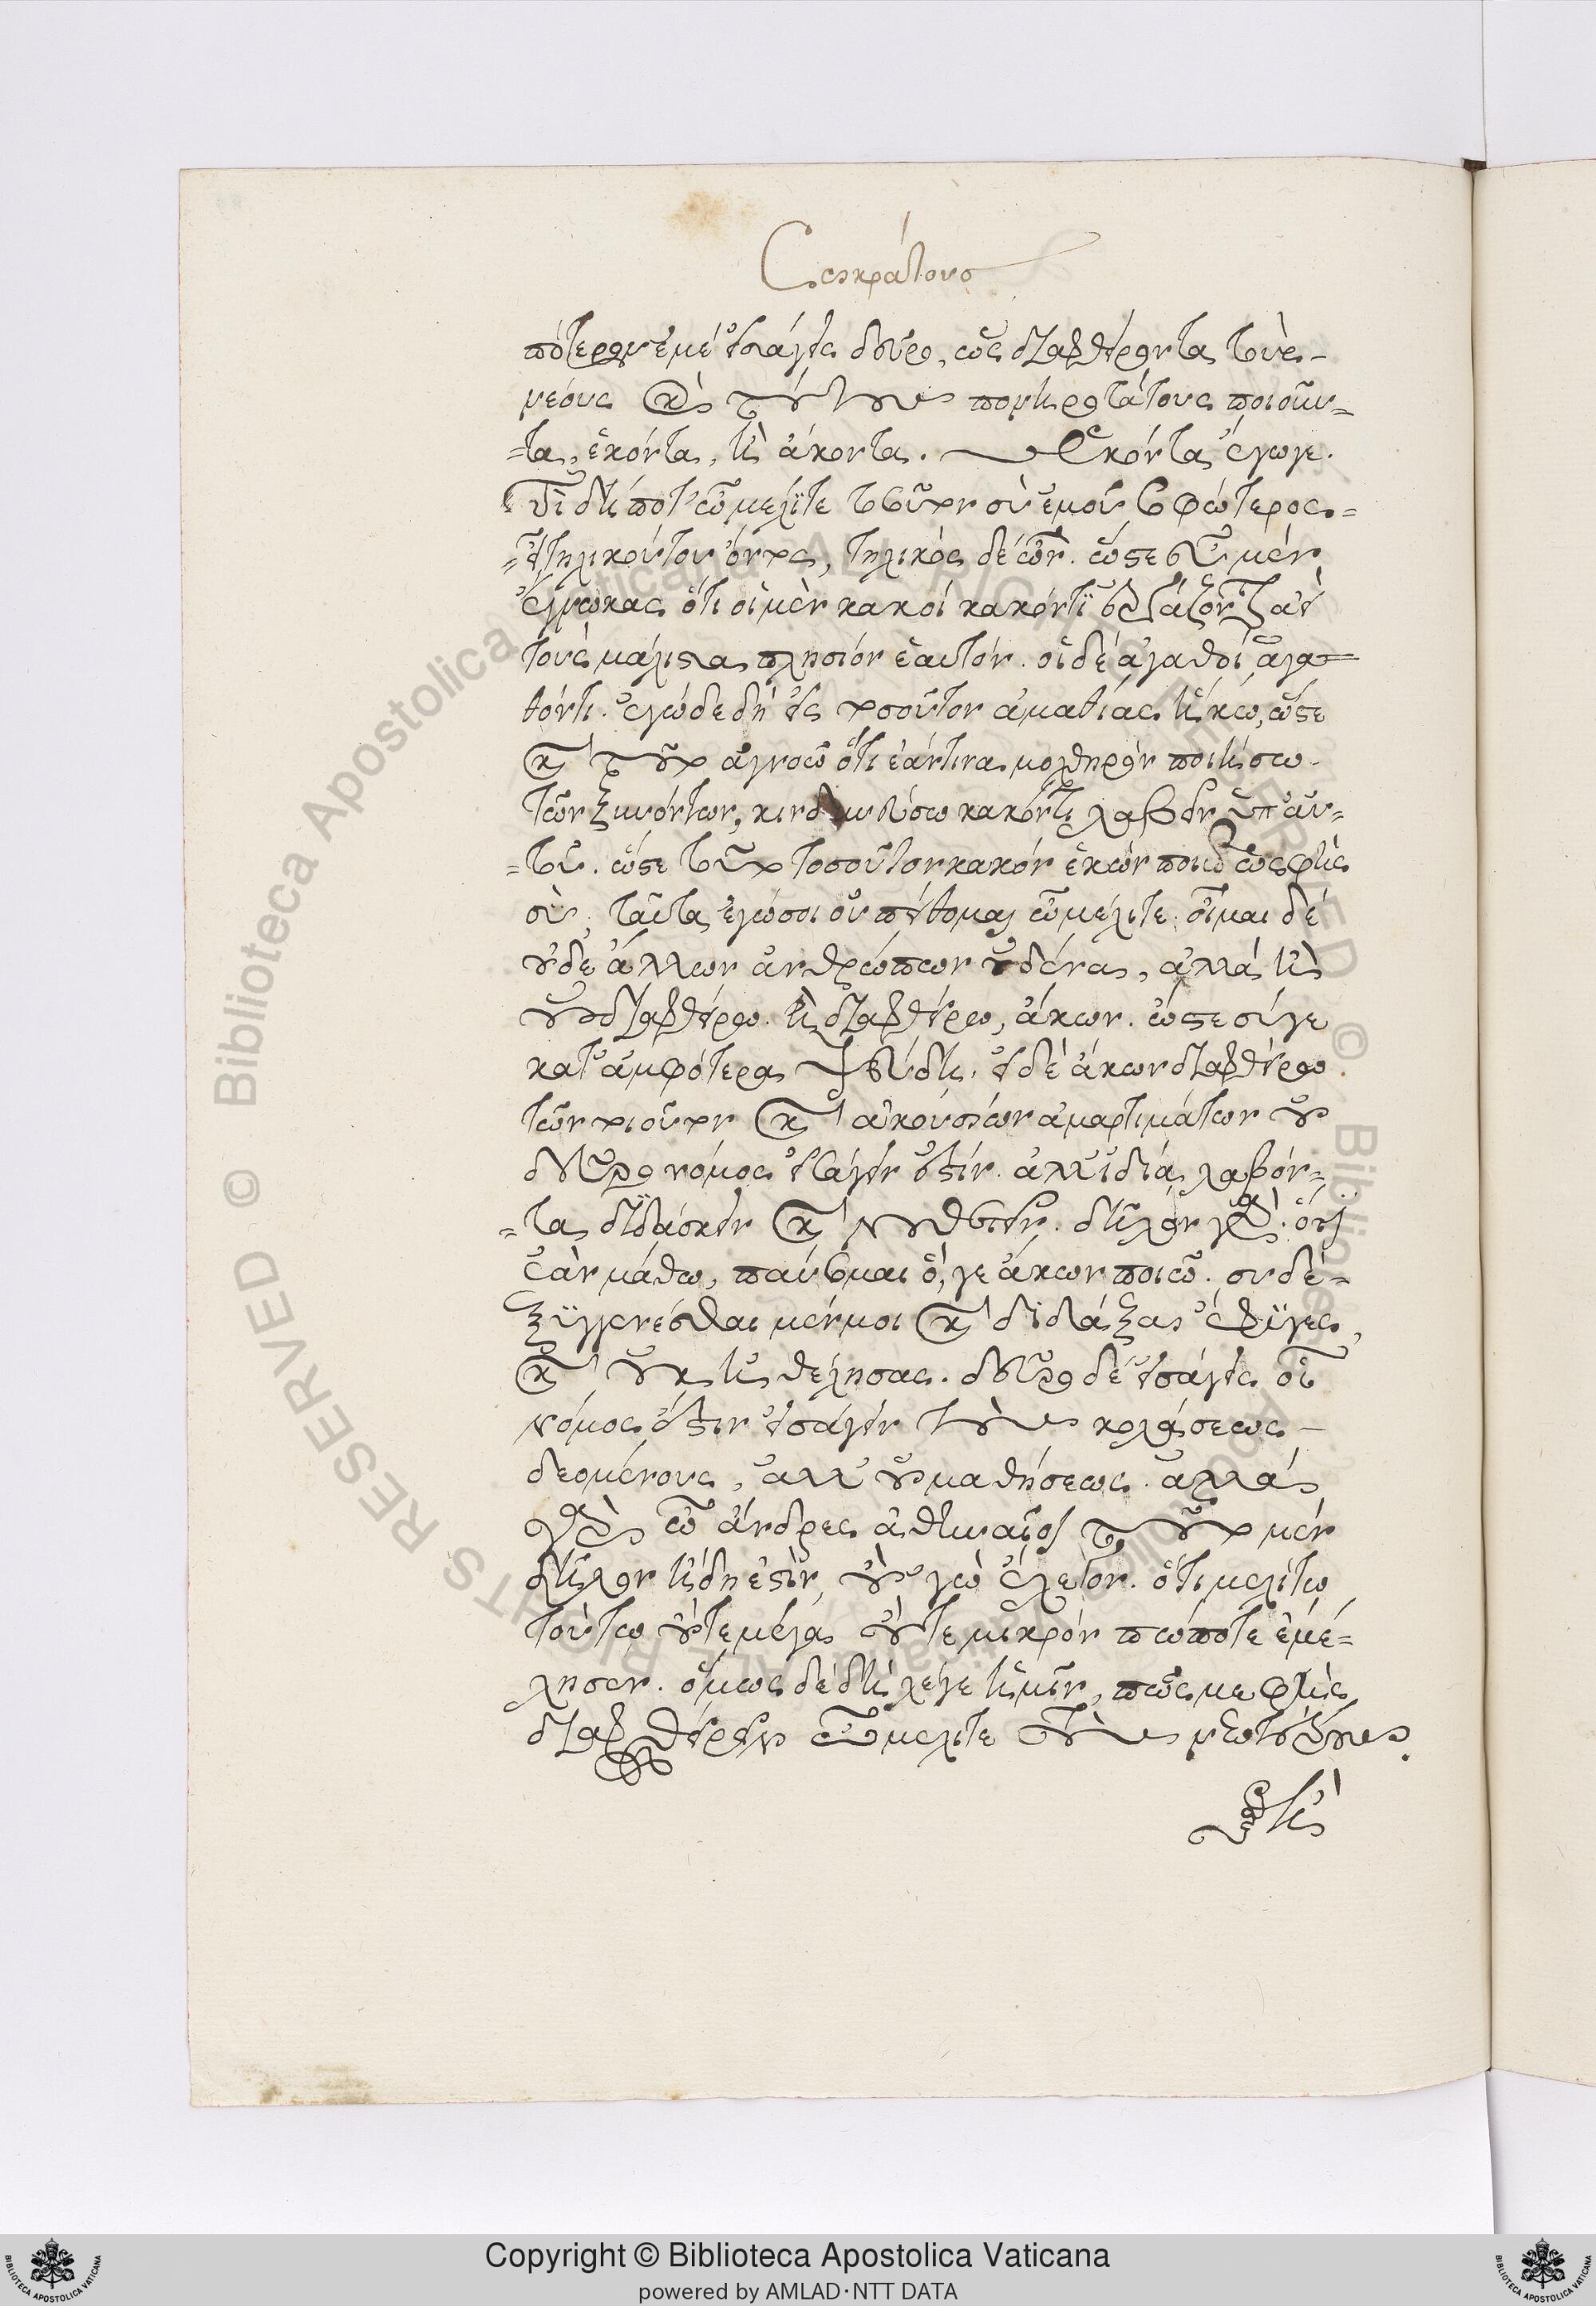 Σωκράτους
πότερον ἐμέ εἰσάγεις δεῦρο, ὡς διαφθείροντα τοὺς
νέους καὶ τούτους πονηροτάτους ποιοῦν-
-τα, ἑκόντα, ἢ ἄκοντα. Ἑκόντα ἔγωγε.
Τί δήποτ' ὦ μέλιτε τοσοῦτον σὺ ἐμοῦ σοφώτερος
τηλικούτου ὄντος, τηλικόσδε ὤν. ὥστε σὺ μέν
ἔγνωκας ὅτι οἱ μὲν κακοί κακόν τι ἐργάζονται ἀεὶ
τοὺς μάλιστα πλησίον ἑαυτόν. οἱ δέ ἀγαθοί ἀγα-
θόν τι. ἐγώ δε δή εἰς τοσοῦτον ἀμαθίας ἥκω, ὥστε
καὶ τοῦτο ἀγνοῶ ὅτι ἐάν τινα μοχθηρόν ποιήσω
τῶν ξυνόντων, κινδυνεύσω κακόν τι λαβεῖν ὑπ' αὐ-
-τοῦ. ὥστε τοῦτο τοσοῦτον κακόν ἑκών ποιῶ ὡς φῂς
σὺ, ταῦτα ἐγώ σοι οὐ πείθομαι ὦ μέλιτε. οἶμαι δέ
οὐδε ἄλλων ἀνθρώπων οὐδένα, ἀλλά ἢ
οὐ διαφθείρω. ἢ διαφθείρω, ἄκων. ὥστε σύ γε
κατ' ἀμφότερα ψεύδῃ. εἰ δὲ ἄκων διαφθείρω
τῶν τοιούτων καὶ ἀκουσίων ἁμαρτιμάτων οὐ
δεῦρο νόμος εἰσάγειν ἐστίν. ἀλλ' ἰδίᾳ λαβόν-
-τα διδάσκειν καὶ νουθετεῖν. δῆλον γὰρ. ὅτι
ἐὰν μάθω, παύσομαι ὅ, γε ἄκων ποιῶ. συ δέ
ξυγγενέσθαι μέν μοι καὶ διδάξαι ἔφυγες,
καὶ οὐκ ἠθέλησας. δεῦρο δέ εἰσάγεις οἷ
νόμος ἐστιν εἰσάγειν τοὺς κολάσεως
δεομένους, ἀλλ' οὐ μαθήσεως. ἀλλά
γὰρ ὦ ἄνδρες ἀθηναῖοι τοῦτο μέν
δῆλον ἤδη ἐστίν, οὐγώ ἔλεγον. ὅτι μελίτω
τούτω οὔτε μέγα οὔτε μικρόν πώποτε ἐμέ-
λησεν. ὅμως δέ δὴ λέγε ἡμῖν, πῶς με φῂς
διαφθείρειν ὦ μελιτε τοὺς νεωτέρους.
ἢ